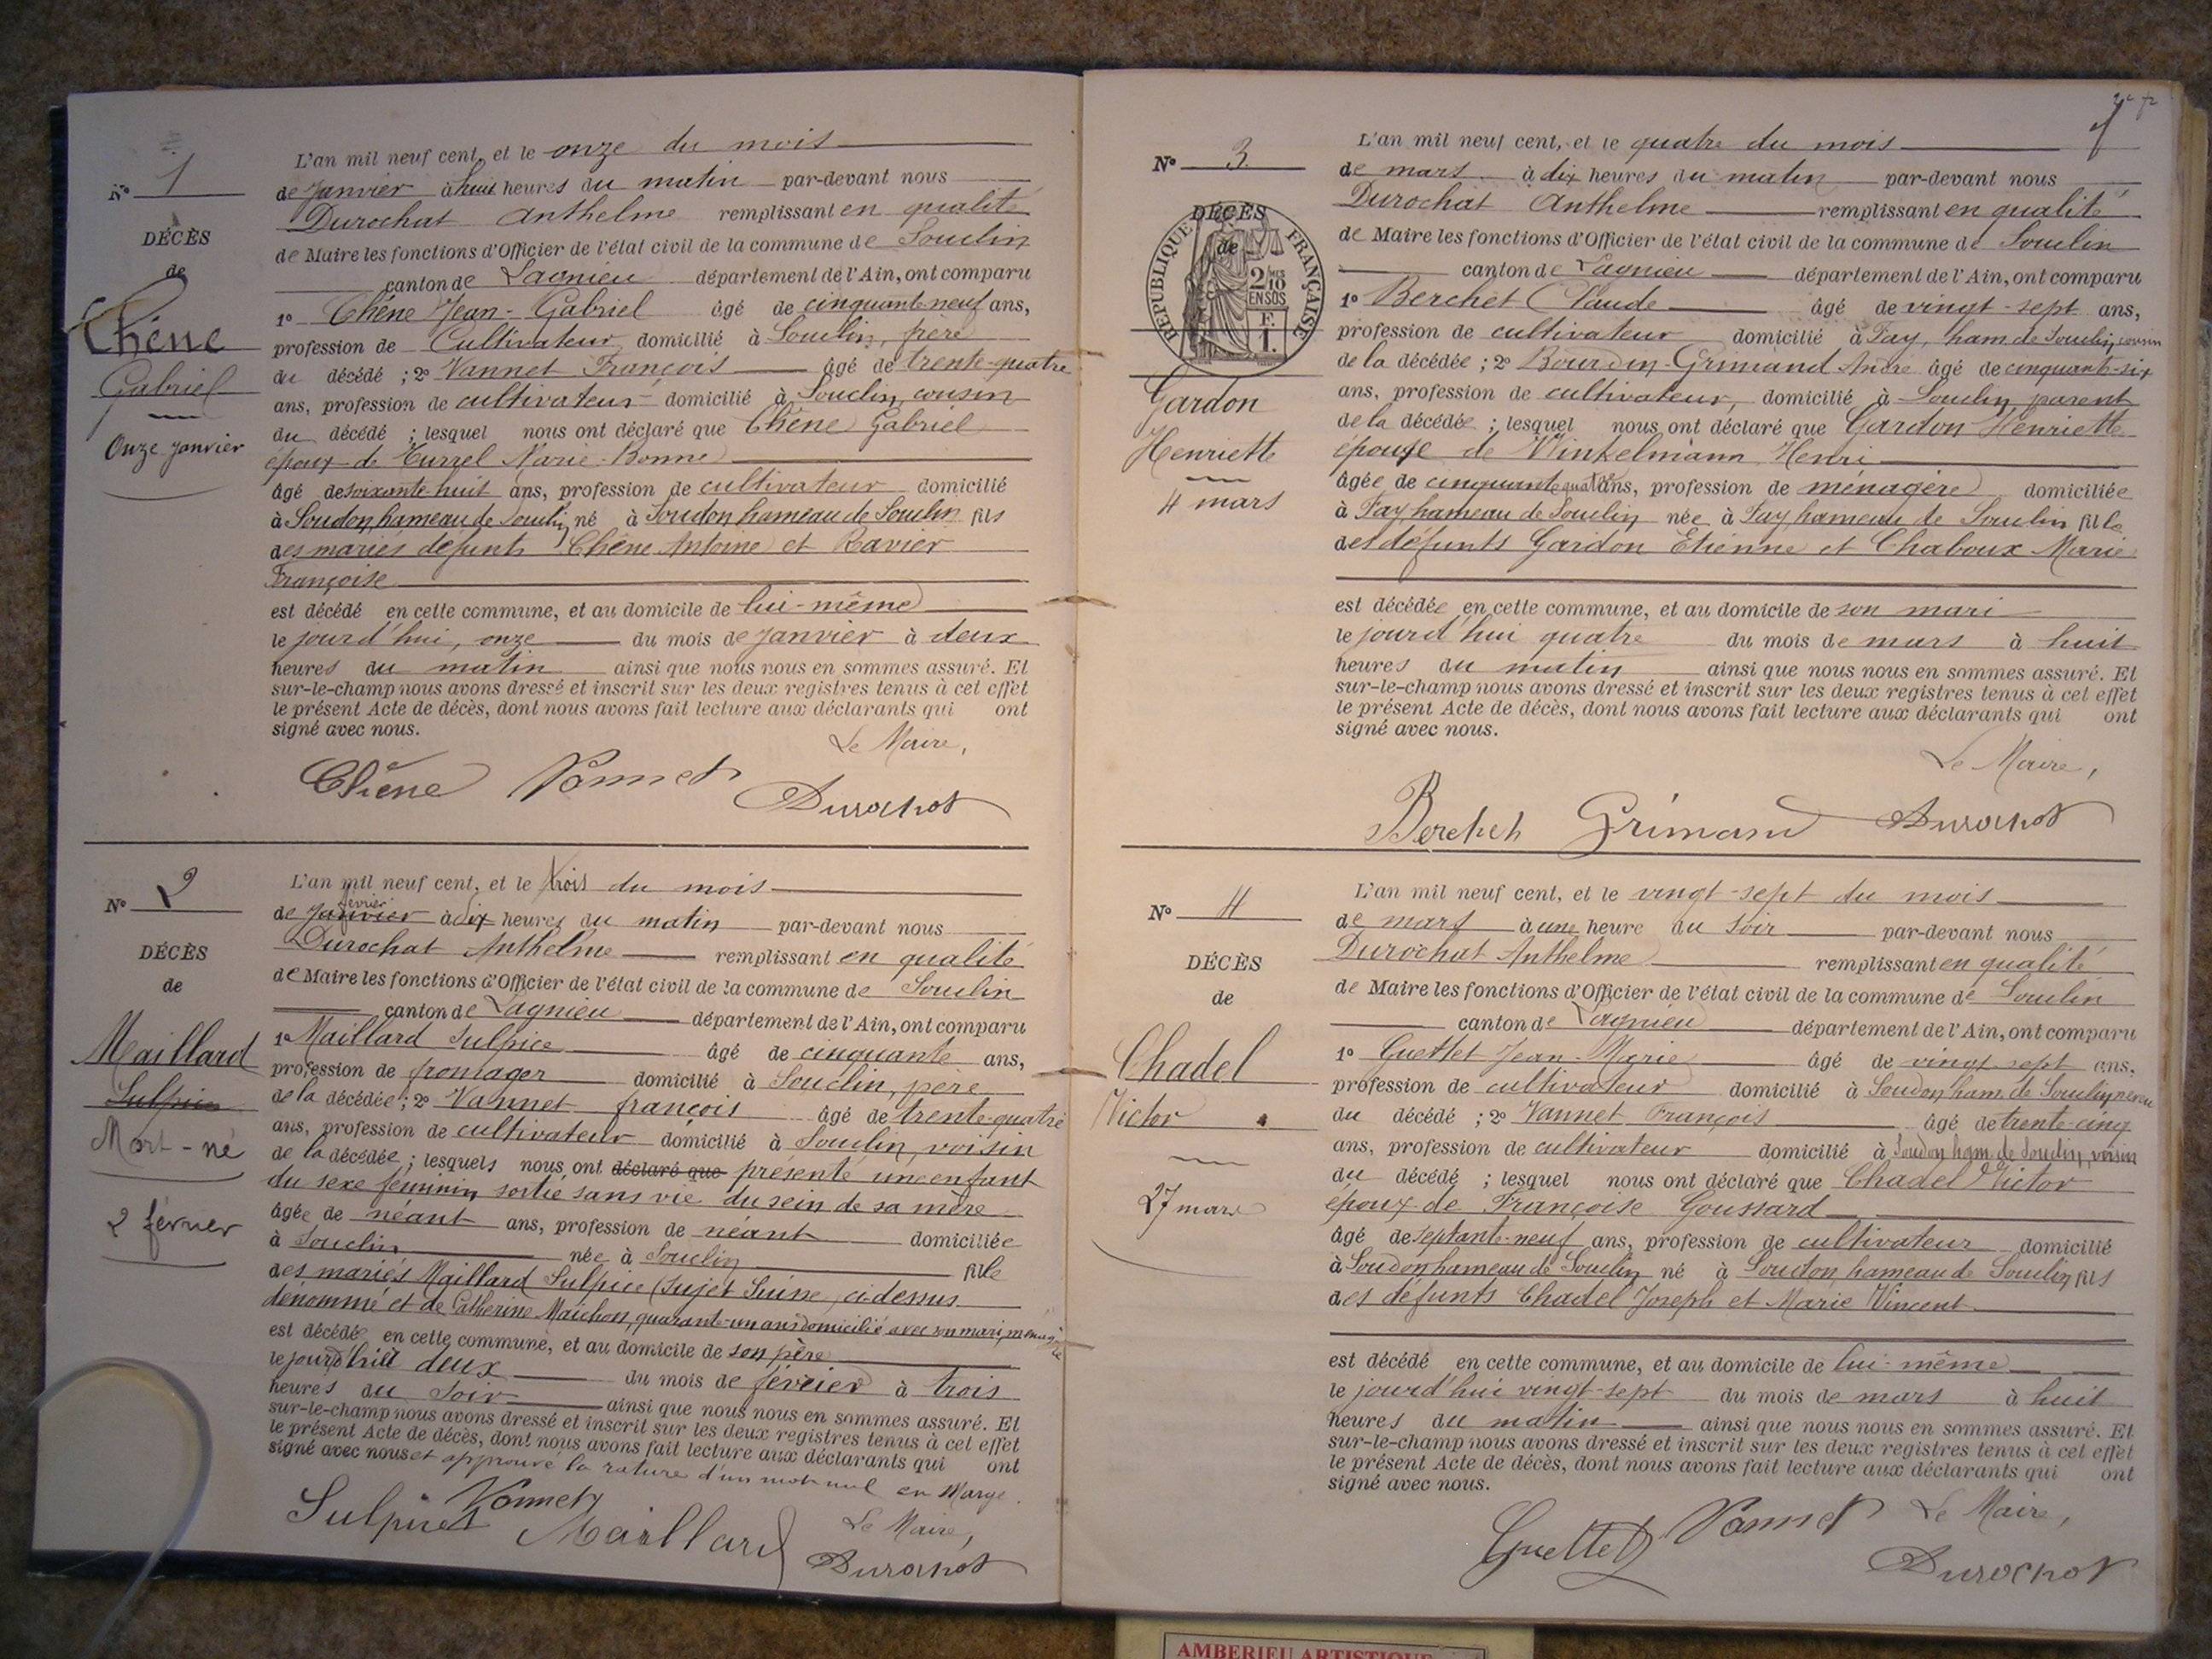 N° 1
DÉCÈS
de
Chêne
Gabriel
Onze janvier
L'an mil neuf cent, et le onze du mois
de Janvier à huit heures du matin par-devant nous
Durochat Anthelme remplissant en qualité
de Maire les fonctions d'Officier de l'état civil de la commune de Souclin
canton de Lagnieu département de l'Ain, ont comparu
1° Chêne Jean-Gabriel âgé de cinquante-neuf ans,
profession de Cultivateur domicilié à Souclin, père
du décédé ; 2° Vannet François âgé de trente-quatre
ans, profession de cultivateur domicilié à Souclin, cousin
du décédé ; lesquel nous ont déclaré que Chêne Gabriel
époux de Currel Marie-Bonne
âgé de soixante-huit ans, profession de cultivateur domicilié
à Soudon, hameau de Souclin, né à Soudon hameau de Souclin fils
des mariés défunts Chêne Antoine et Ravier
Françoise
est décédé en cette commune, et au domicile de lui-même
le jourd'hui, onze du mois de Janvier à deux
heures du matin ainsi que nous nous en sommes assuré. Et
sur-le-champ nous avons dressé et inscrit sur les deux registres tenus à cet effet
le présent Acte de décès, dont nous avons fait lecture aux déclarants qui ont
signé avec nous.
Le Maire,
Chêne Vannet Durochat
N° 2
DÉCÈS
de
Maillard
Sulpice
Mort-né
2 février
L'an mil neuf cent, et le trois du mois
février
de Janvier à dix heures du matin par-devant nous
Durochat Anthelme remplissant en qualité
de Maire les fonctions d'Officier de l'état civil de la commune de Souclin
canton de Lagnieu département de l'Ain, ont comparu
1° Maillard Sulpice âgé de cinquante ans,
profession de fromager domicilié à Souclin, père
de la décédée ; 2° Vannet françois âgé de trente-quatre
ans, profession de cultivateur domicilié à Souclin, voisin
de la décédée ; lesquels nous ont déclaré que présenté un enfant
du sexe féminin sortie sans vie du sein de sa mère
âgée de néant ans, profession de néant domiciliée
à Souclin née à Souclin fille
des mariés Maillard Sulpice (Sujet Suisse) ci-dessus
dénommé et de Catherine Maichon, quarante-un ans domicilié avec son mari, ménagère
est décédée en cette commune, et au domicile de son père
le jourd'hui deux du mois de février à trois
heures du soir ainsi que nous nous en sommes assuré. Et
sur-le-champ nous avons dressé et inscrit sur les deux registres tenus à cet effet
le présent Acte de décès, dont nous avons fait lecture aux déclarants qui ont
signé avec nous et approuvé la rature d'un mot nul en Marge.
Vannet
Sulpice Maillard
Le Maire,
Durochat
N° 3
DÉCÈS
de
RÉPUBLIQUE FRANÇAISE
2/10
EN SUS
F.
1.
Gardon
Henriette
4 mars
L'an mil neuf cent, et le quatre du mois
de mars à dix heures du matin par-devant nous
Durochat Anthelme remplissant en qualité
de Maire les fonctions d'Officier de l'état civil de la commune de Souclin
canton de Lagnieu département de l'Ain, ont comparu
1° Berchet Claude âgé de vingt-sept ans,
profession de cultivateur domicilié à Fay, ham. de Souclin, cousin
de la décédée ; 2° Bourdin-Grimand André âgé de cinquante-six
ans, profession de cultivateur, domicilié à Souclin parent
de la décédée ; lesquel nous ont déclaré que Gardon Henriette
épouse de Winkelmann Henri
âgée de cinquante quatre ans, profession de ménagère domiciliée
à Fay, hameau de Souclin née à Fay hameau de Souclin fille
des défunts Gardon Etienne et Chaboux Marie
est décédée en cette commune, et au domicile de son mari
le jourd'hui quatre du mois de mars à huit
heures du matin ainsi que nous nous en sommes assuré. Et
sur-le-champ nous avons dressé et inscrit sur les deux registres tenus à cet effet
le présent Acte de décès, dont nous avons fait lecture aux déclarants qui ont
signé avec nous.
Le Maire,
Berchet Grimand Durochat
N° 4
DÉCÈS
de
Chadel
Victor
27 mars
L'an mil neuf cent, et le vingt-sept du mois
de mars à une heure du soir par-devant nous
Durochat Anthelme remplissant en qualité
de Maire les fonctions d'Officier de l'état civil de la commune de Souclin
canton de Lagnieu département de l'Ain, ont comparu
1° Guettet Jean-Marie âgé de vingt sept ans,
profession de cultivateur domicilié à Soudon, ham. de Souclin, neveu
du décédé ; 2° Vannet François âgé de trente-cinq
ans, profession de cultivateur domicilié à Soudon ham. de Souclin, voisin
du décédé ; lesquel nous ont déclaré que Chadel Victor
époux de Françoise Goussard
âgé de septante-neuf ans, profession de cultivateur domicilié
à Soudon hameau de Souclin né à Soudon, hameau de Souclin fils
des défunts Chadel Joseph et Marie Vincent
est décédé en cette commune, et au domicile de lui-même
le jourd'hui vingt-sept du mois de mars à huit
heures du matin ainsi que nous nous en sommes assuré. Et
sur-le-champ nous avons dressé et inscrit sur les deux registres tenus à cet effet
le présent Acte de décès, dont nous avons fait lecture aux déclarants qui ont
signé avec nous.
Guettet Vannet Le Maire,
Durochat
AMBERIEU ARTISTIQUE